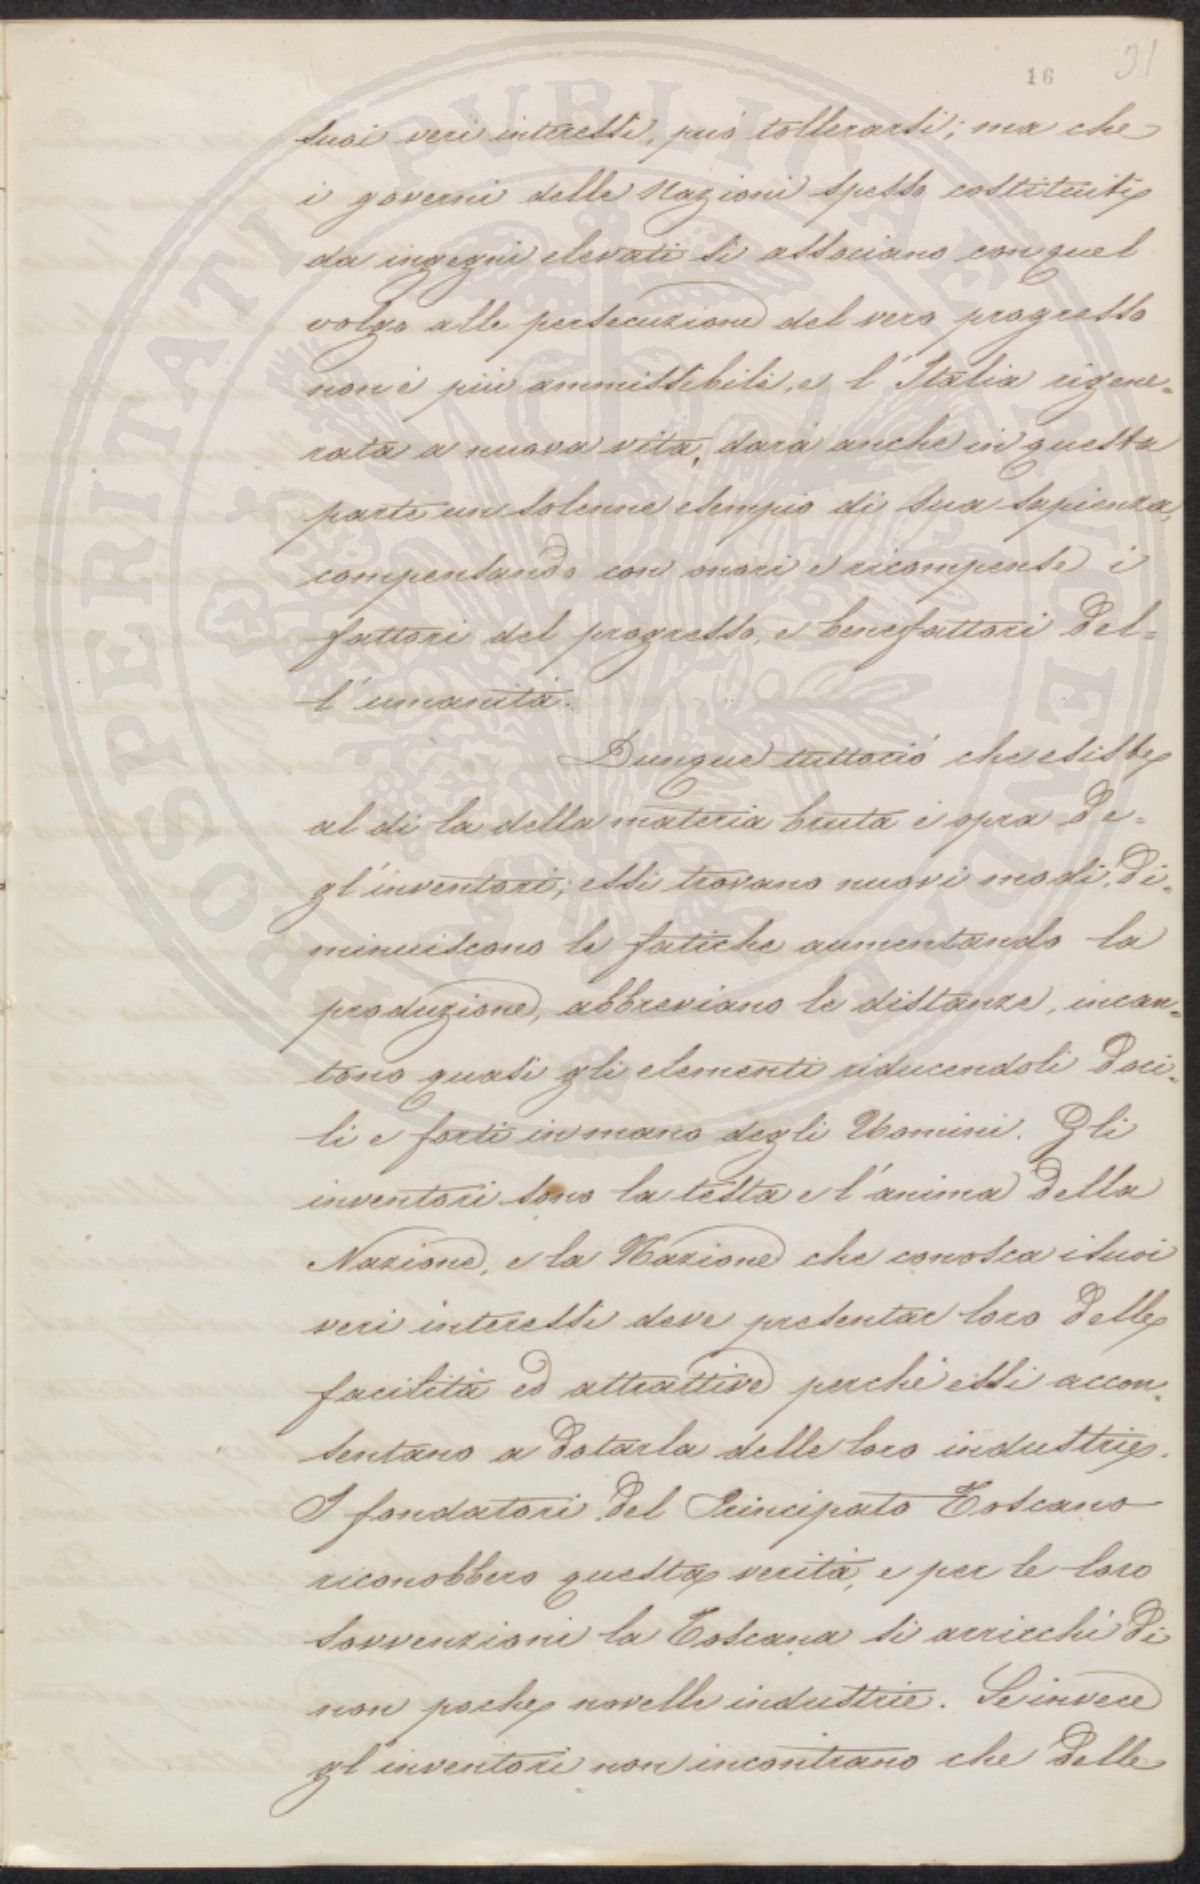 16
31
suoi veri interessi, può tollerarsi; ma che
i governi delle Nazioni spesso costituiti
da ingegni elevati si associano con quel
volgo alle persecuzione del vero progresso
non è più ammissibile, e l'Italia rigene=
rata a nuova vita, darà anche in questa
parte un solenne esempio di sua sapienza,
compensando con onori e ricompense i
fattori del progresso, e benefattori del=
l'umanità.
Dunque tuttociò che esiste
al di la della materia bruta è opra de=
gl'inventori; essi trovano nuovi modi, di=
minuiscono le fatiche aumentando la
produzione, abbreviano le distanze, incan=
tono quasi gli elementi riducendoli doci=
li e forti in mano degli Uomini. Gli
inventori sono la testa e l'anima della
Nazione, e la Nazione che conosca i suoi
veri interessi deve presentar loro delle
facilità ed attrattive perchè essi accon=
sentano a dotarla delle loro industrie.
I fondatori del Principato Toscano
riconobbero questa verità, e per le loro
sovvenzioni la Toscana si arricchì di
non poche novelle industrie. Se invece
gl'inventori non incontrano che delle
PROSPERITATI PVBLICAE